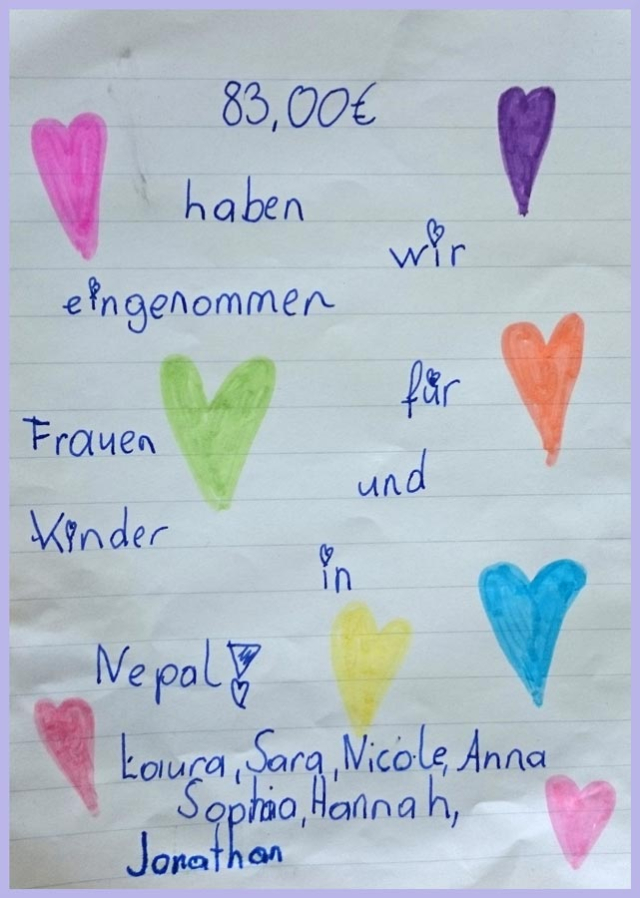 83,00€
haben
wir
eingenommen
für
Frauen
und
Kinder
in
Nepal!
Laura, Sara, Nicole, Anna
Sophia, Hannah,
Jonathan